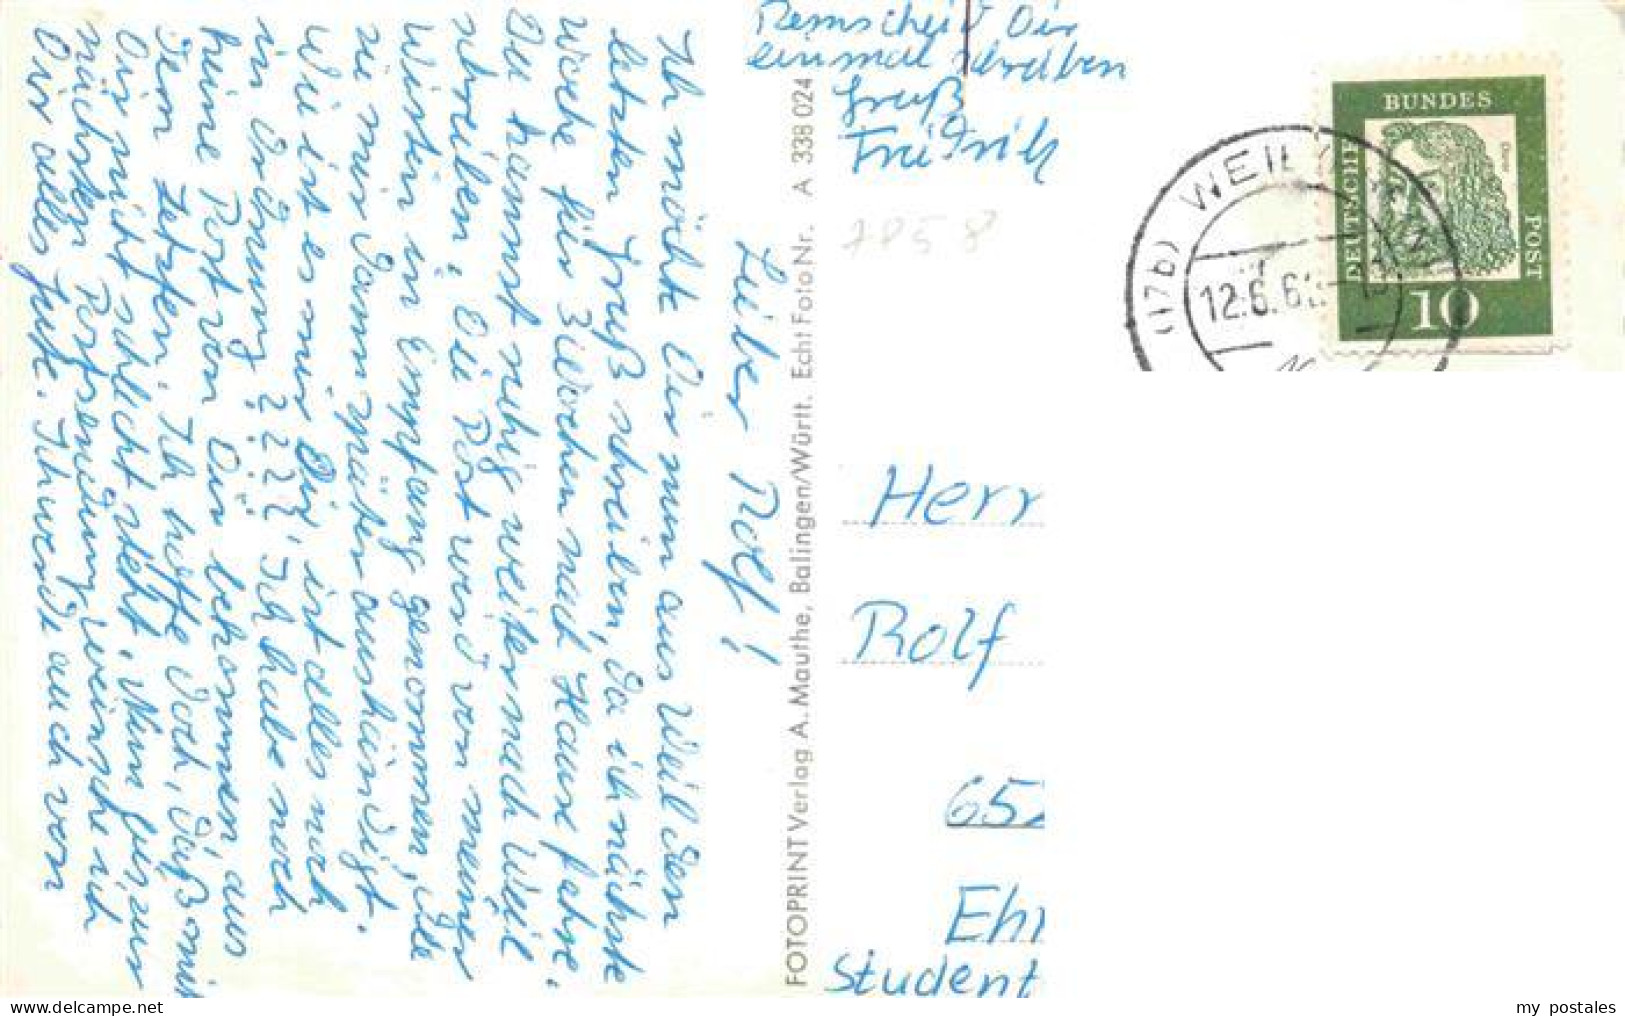 Lieber Rolf!
Ich möchte Dir nun aus Weil den
letzten Gruß schreiben, da ich nächste
Woche für 3 Wochen nach Hause fahre.
Du kannst ruhig weiter nach Weil
schreiben, die Post wird von meiner
Wirtin in Empfang genommen, die
sie mir dann später aushändigt.
Wie ist es mir Dir, ist alles noch
in Ordnung ???? Ich habe noch
keine Post von Dir bekommen, aus
Ich hoffe doch, daß
Dir nicht schlecht geht. Nun
wünsche ich
Dir alles Gute. Ich werde auch von
Remscheid Dir
einmal schreiben
Gruß
Friedrich
FOTOPRINT Verlag A. Mauthe, Balingen/Württ. Echt Foto Nr. A 338 024
7858
(17b) WEIL
12.6.6
DEUTSCHE
BUNDES
POST
10
Herr
Rolf
65
Eh
Student
my postales